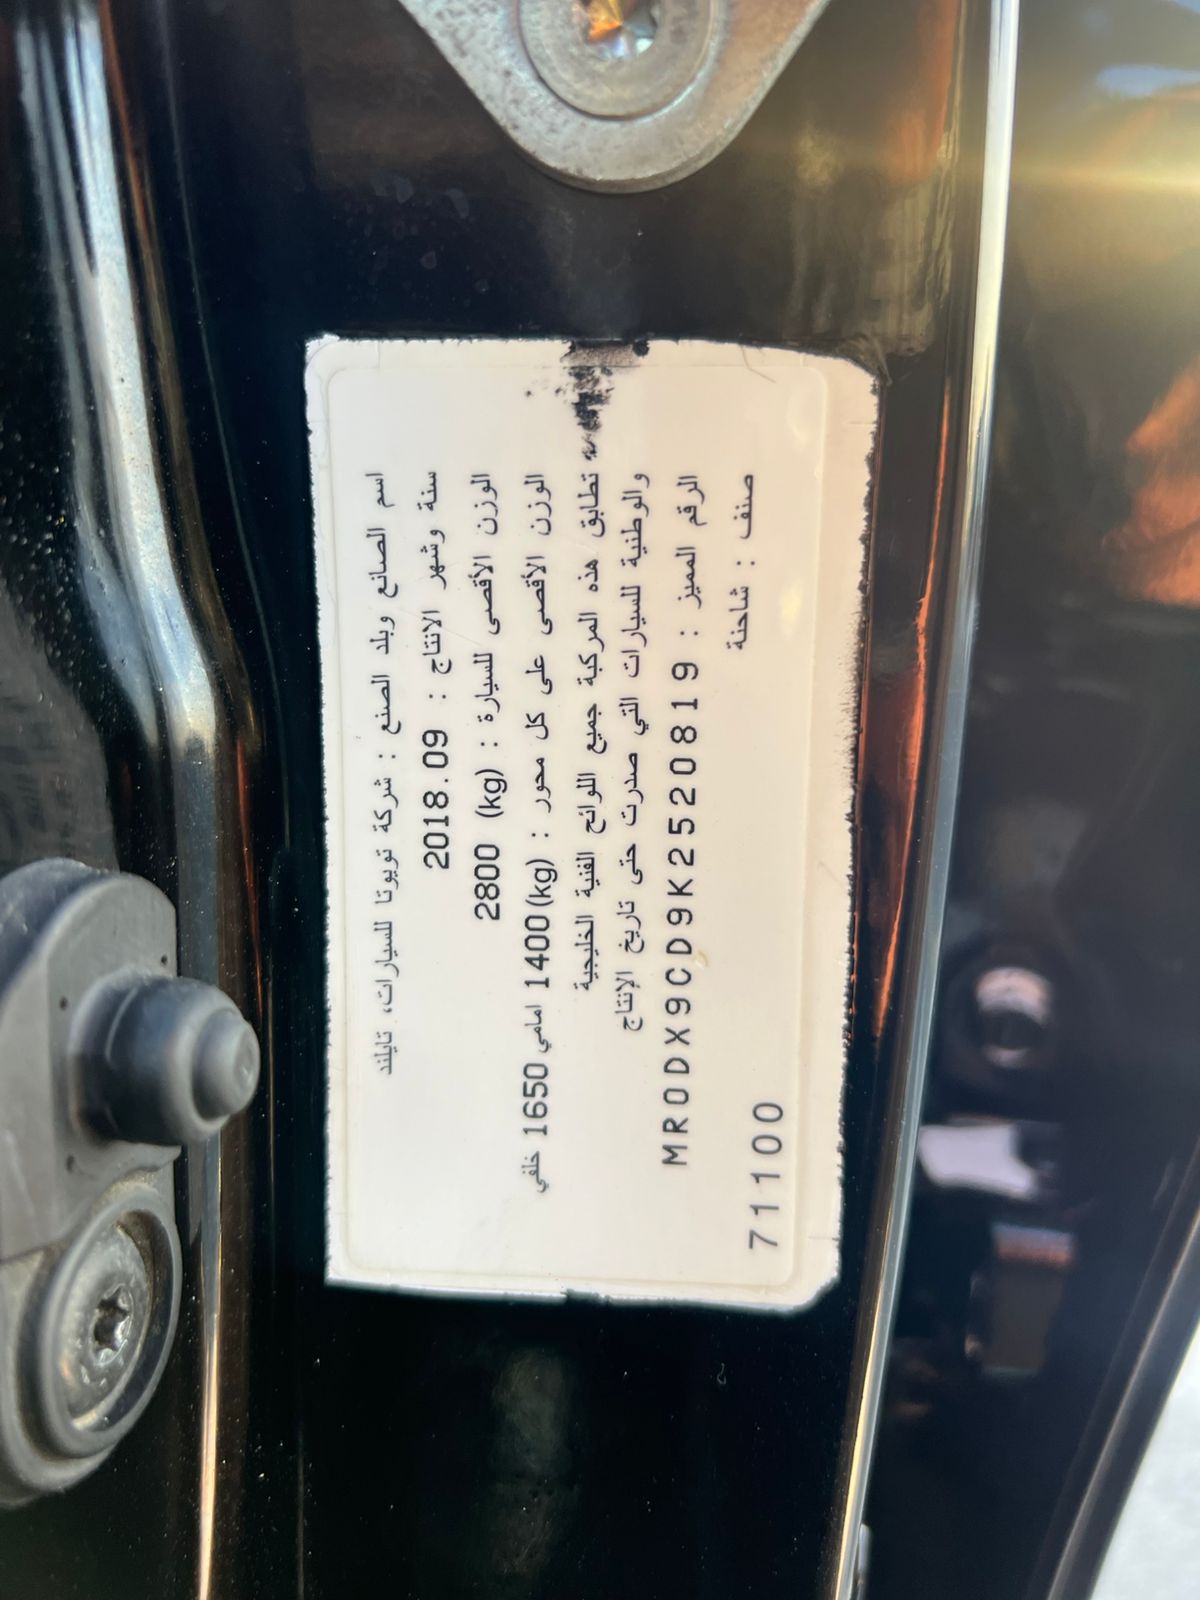 اسم الصانع وبلد الصنع : شركة تويوتا للسيارات، تايلند
سنة وشهر الانتاج : 2018.09
الوزن الأقصى للسيارة : 2800 (kg)
الوزن الأقصى على كل محور : 1400(kg) امامي 1650 خلفي
تطابق هذه المركبة جميع اللوائح الفنية الخليجية
والوطنية للسيارات التي صدرت حتى تاريخ الإنتاج
الرقم المميز : MR0DX9CD9K2520819
صنف : شاحنة
71100